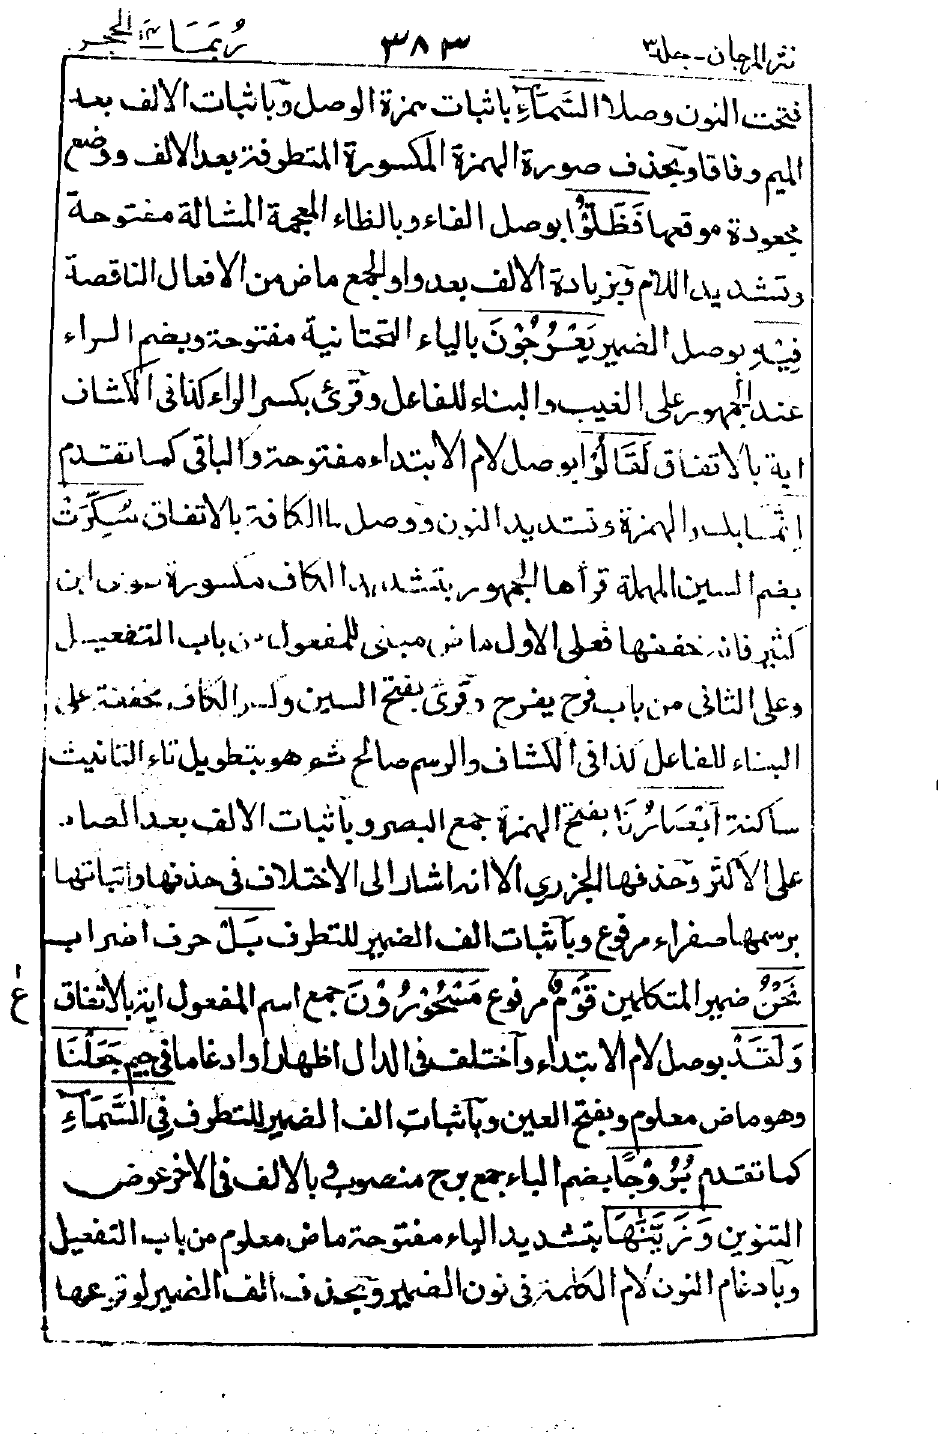 نثر المرجان - جلد ٣ ٣٨٣ رُبَمَا ١٤ الحجر
فتحت النون وصلا السَّمَآءِ باثبات همزة الوصل وباثبات الالف بعد
الميم وفاقا وبحذف صورة الهمزة المكسورة المتطرفة بعد الالف ووضع
مجعودة موقعها فَظَلُّوْا بوصل الفاء وبالظاء المعجمة المشالة مفتوحة
وتشديد اللام وبزيادة الالف بعد واو الجمع ماض من الافعال الناقصة
فِيْهِ بوصل الضمير يَعْرُجُوْنَ بالياء التحتانية مفتوحة وبضم الراء
عند الجمهور على الغيب والبناء للفاعل وقرئ بكسر الراء كذا فى الكشاف
اية بالاتفاق لَقَالُوْا بوصل لام الابتداء مفتوحة والباقى كما تقدم
اِنَّمَا بكسر الهمزة وتشديد النون ووصل ما الكافة بالاتفاق سُكِّرَتْ
بضم السين المهملة قرأها الجمهور بتشديد الكاف مكسورة سوى ابن
كثير فانه خففها فعلى الاول ماض مبنى للمفعول من باب التفعيل
وعلى الثانى من باب فرح يفرح وقرئ بفتح السين وكسر الكاف مخففة على
البناء للفاعل كذا فى الكشاف والرسم صالح ثم هو بتطويل تاء التانيث
ساكنة اَبْصَارُنَا بفتح الهمزة جمع البصر وباثبات الالف بعد الصاد
على الاكثر وحذفها الجزرى الا انه اشار الى الاختلاف فى حذفها واثباتها
برسمها صفراء مرفوع وباثبات الف الضمير للتطرف بَلْ حرف اضراب
نَحْنُ ضمير المتكلمين قَوْمٌ مرفوع مَسْحُوْرُوْنَ جمع اسم المفعول اية بالاتفاق
ع
وَلَقَدْ بوصل لام الابتداء واختلف فى الدال اظهارا وادغاما فى جيم جَعَلْنَا
وهو ماض معلوم وبفتح العين وباثبات الف الضمير للتطرف فِى السَّمَآءِ
كما تقدم بُرُوْجًا بضم الباء جمع برج منصوب وبالالف فى الاخر عوض
التنوين وَزَيَّنّٰهَا بتشديد الياء مفتوحة ماض معلوم من باب التفعيل
وبادغام النون لام الكلمة فى نون الضمير وبحذف الف الضمير لوقوعها